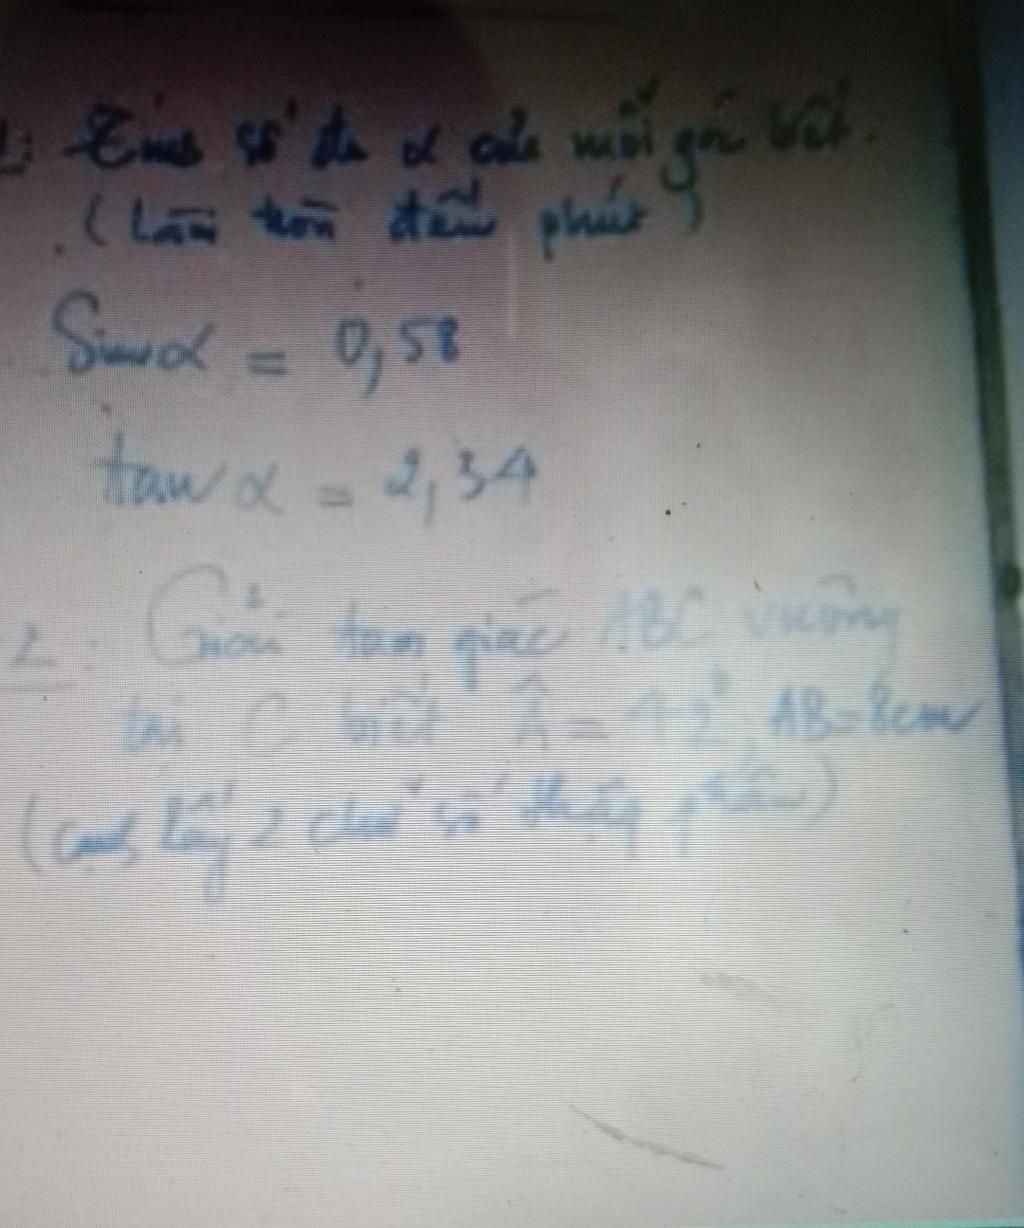 1: Tìm số đo α của mỗi góc biết.
(Làm tròn đến phút)
Sin α = 0,58
tan α = 2,34
2: Giải tam giác ABC vuông
tại C biết Â = 42°, AB = 8cm
(cạnh lấy 2 chữ số thập phân)